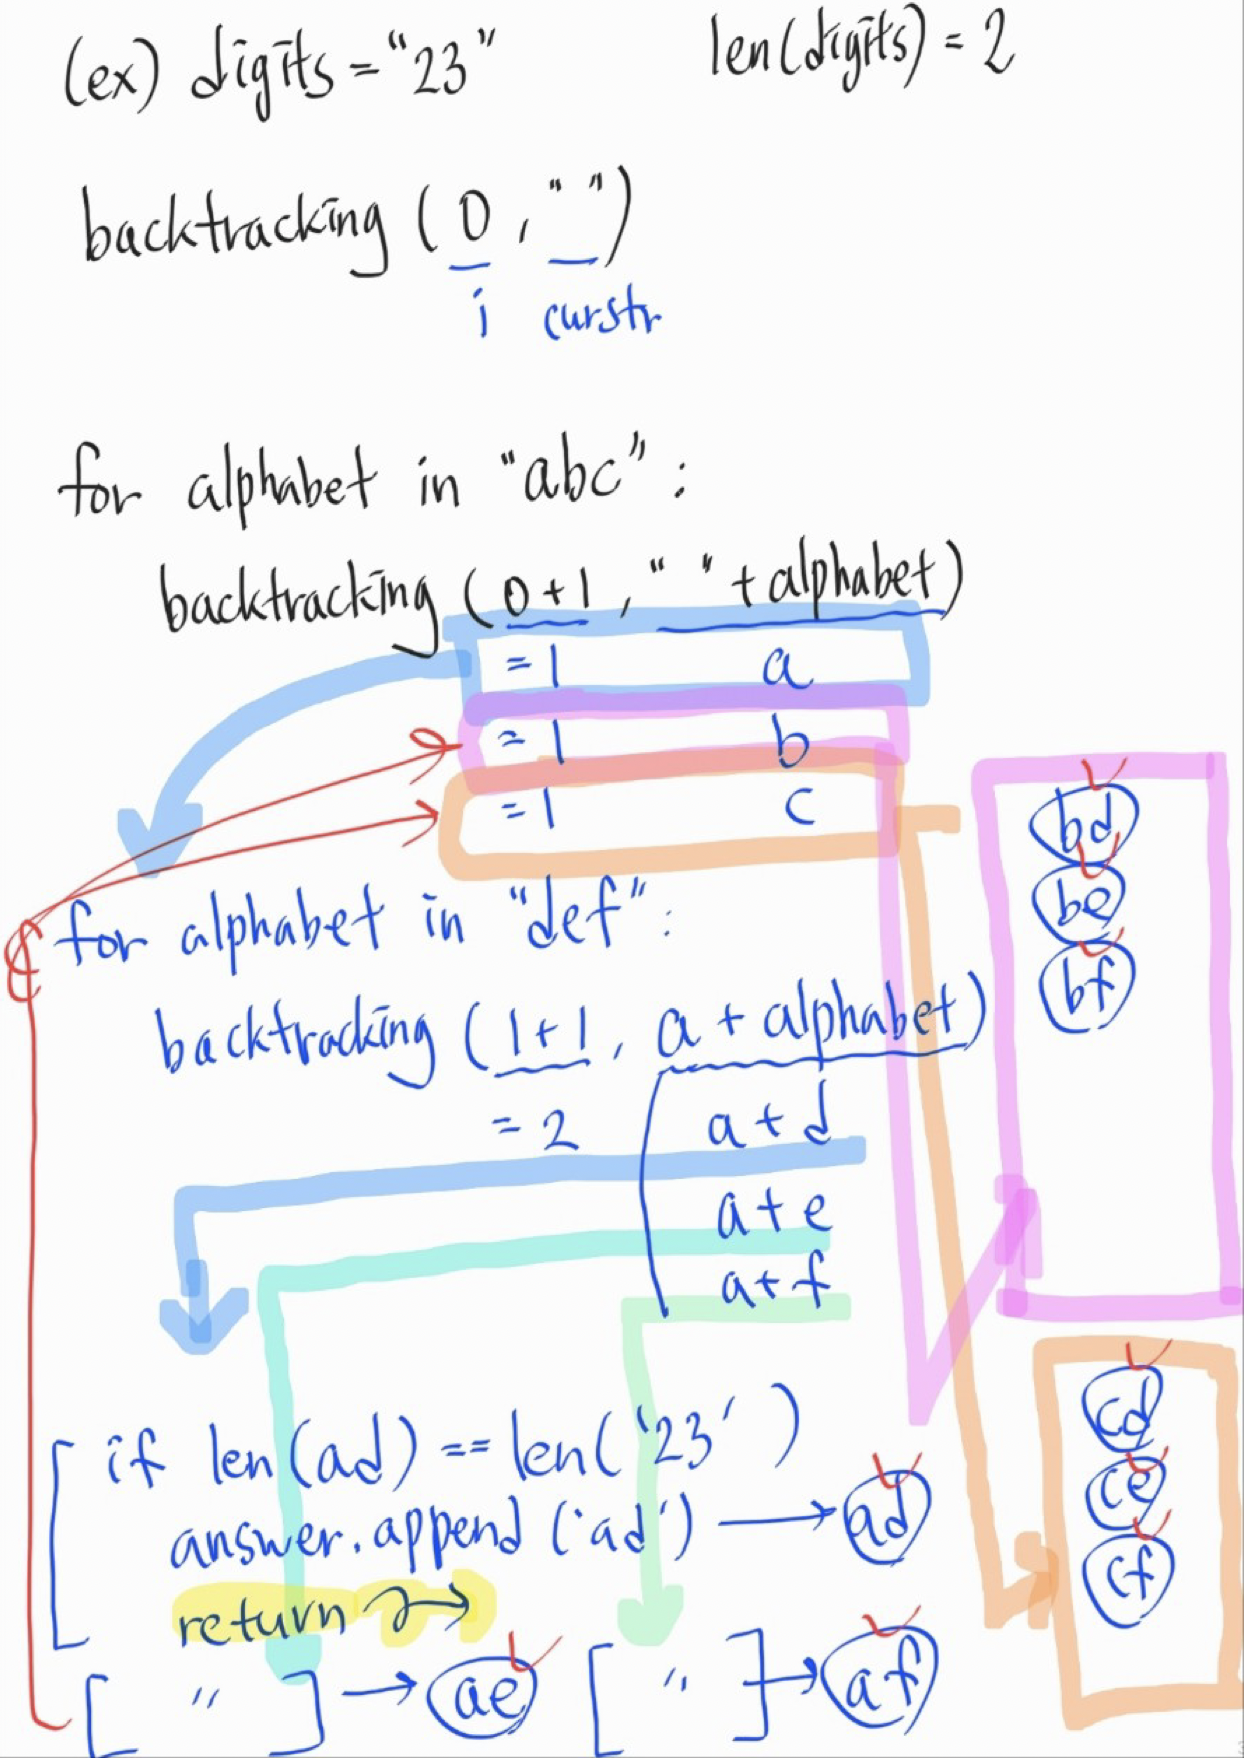 (ex) digits = "23" len(digits) = 2
backtracking ( 0 , " " )
i curstr
for alphabet in "abc" :
backtracking ( 0+1 , " " + alphabet )
= 1 a
= 1 b
= 1 c
bd
be
bf
for alphabet in "def" :
backtracking ( 1+1 , a + alphabet )
= 2 a + d
a + e
a + f
cd
ce
cf
if len(ad) == len('23')
answer.append('ad') → ad
return
[ " ] → ae [ " ] → af